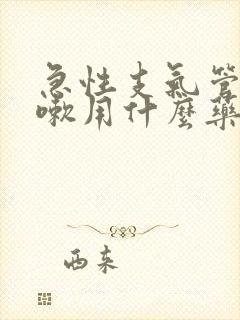 急性支气管
嗽用什麼藥
西来